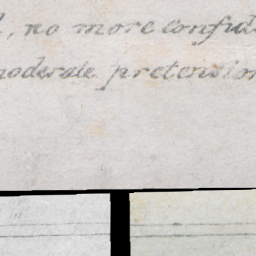 , no more confid
moderate pretension